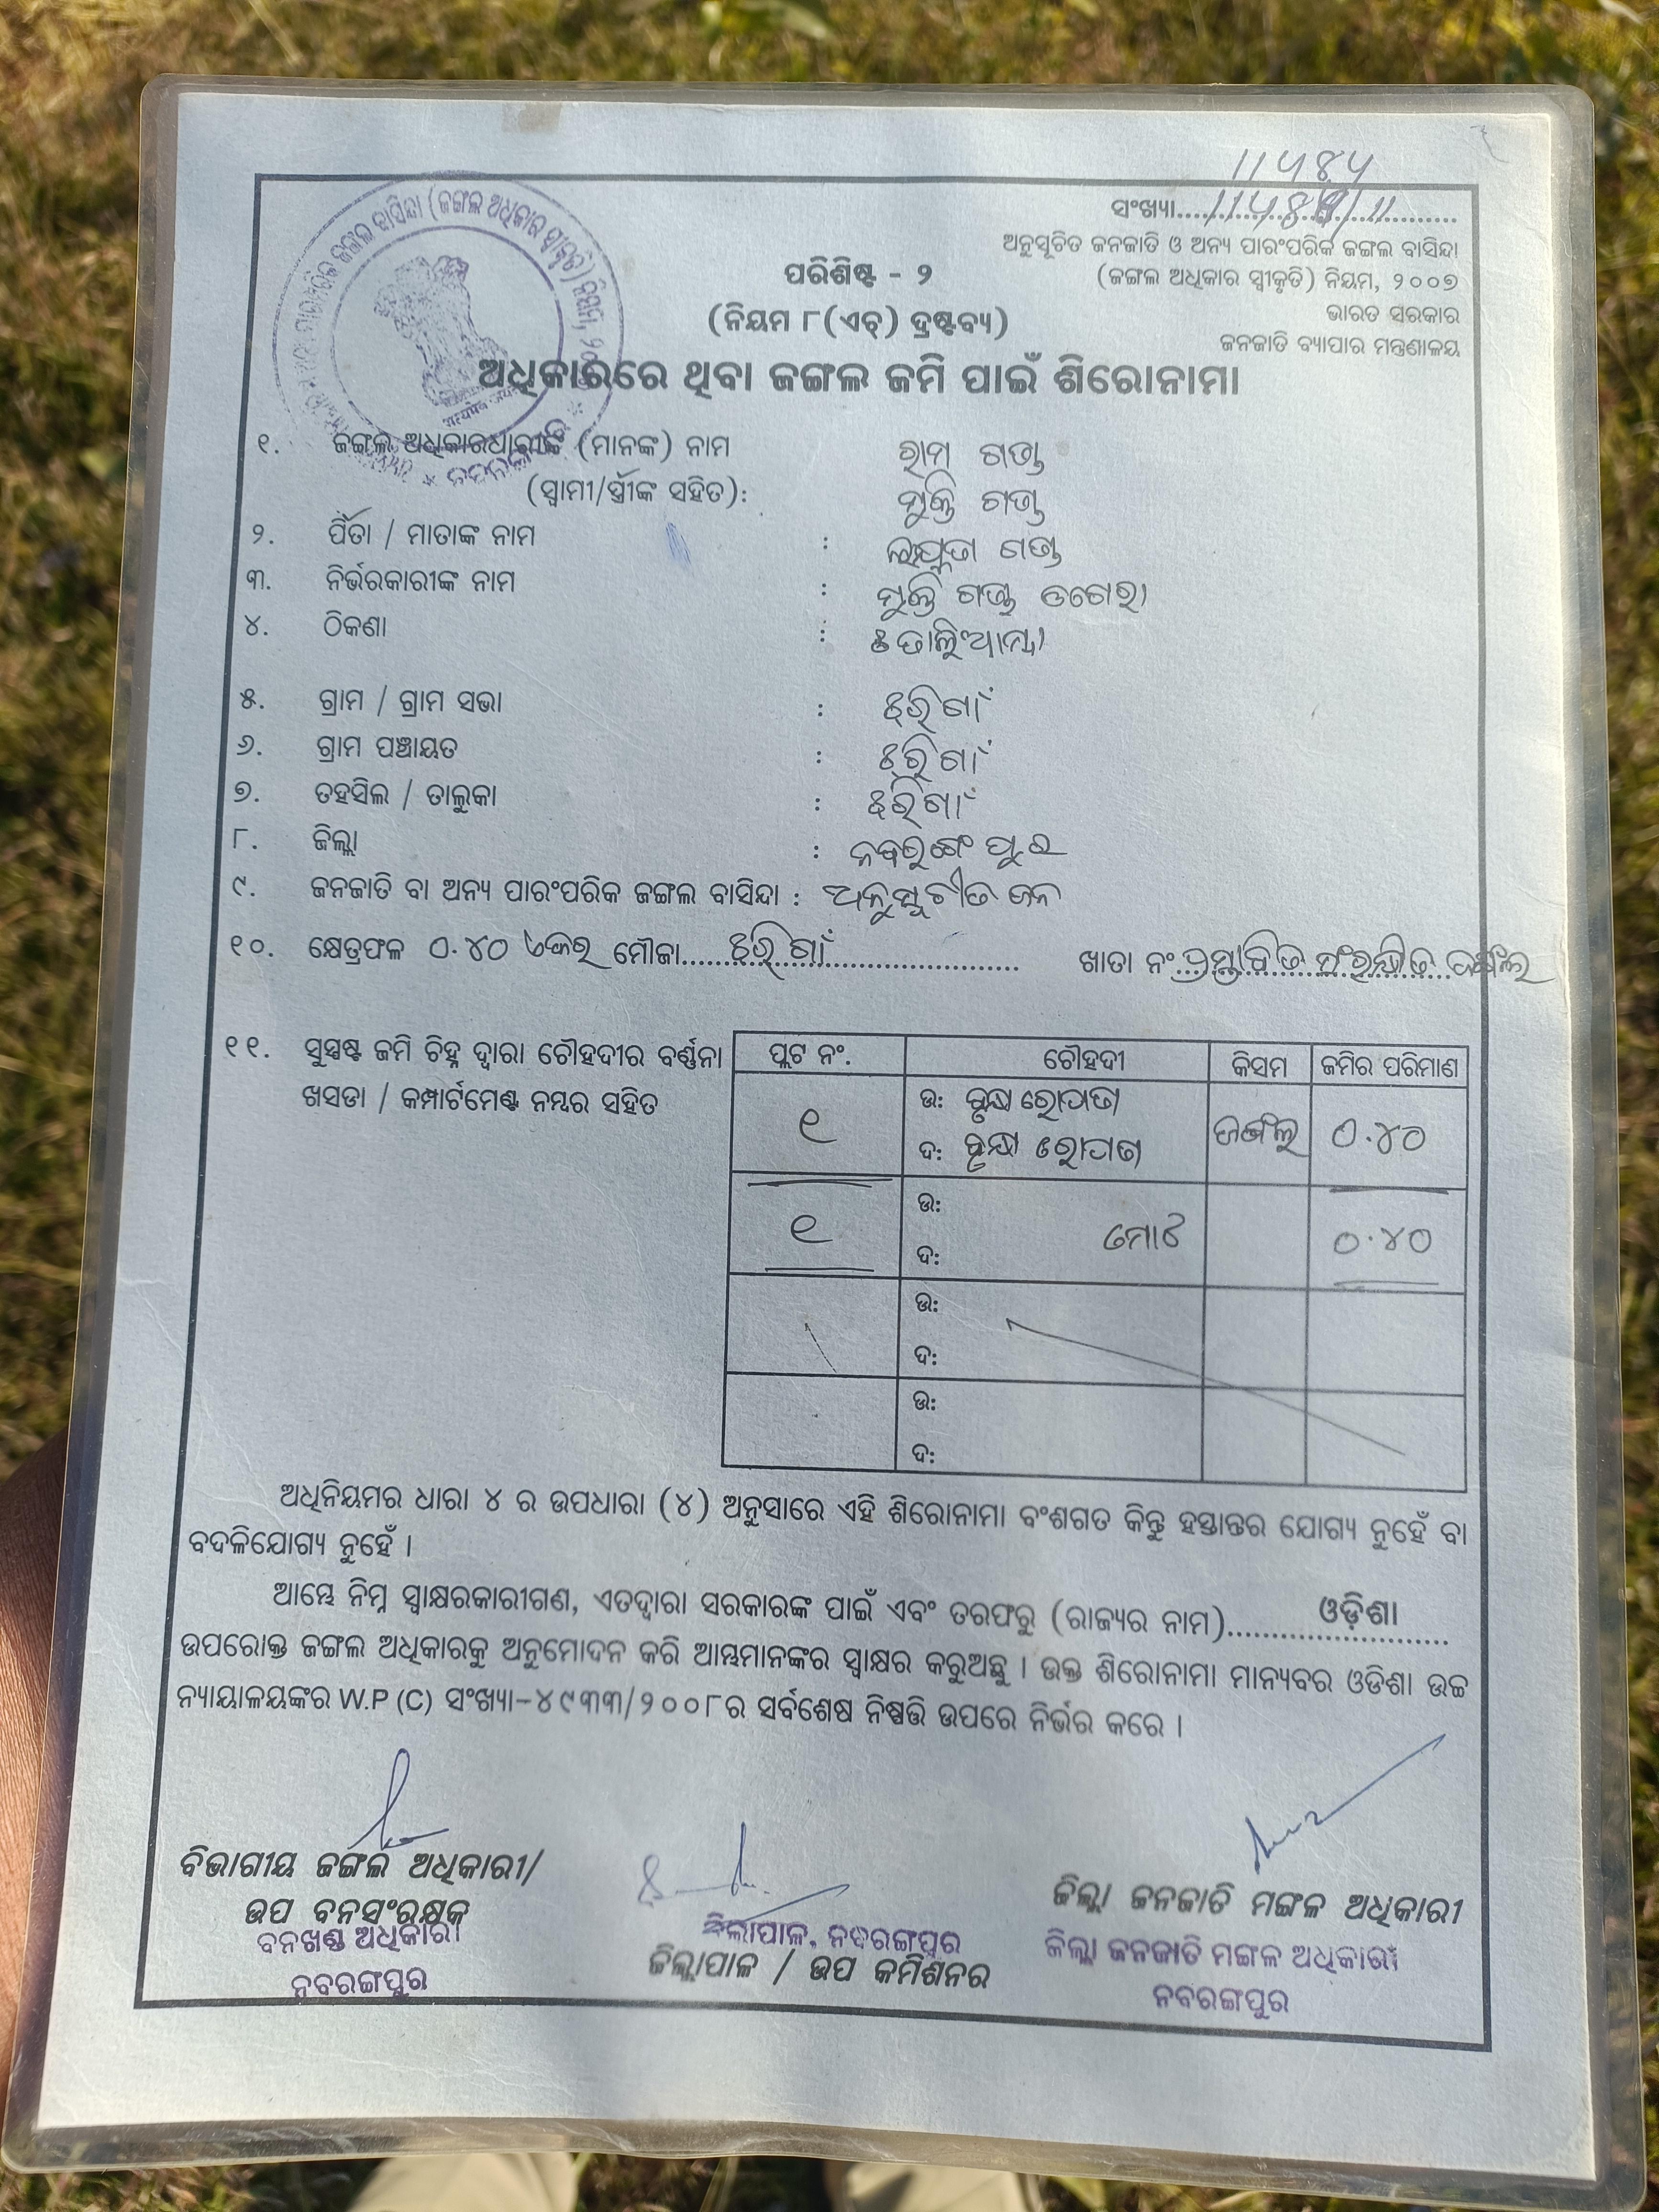 ୧୧୪୫୪
ସଂଖ୍ୟା..............................
ଅନୁସୂଚିତ ଜନଜାତି ଓ ଅନ୍ୟ ପାରଂପରିକ ଜଙ୍ଗଲ ବାସିନ୍ଦା
(ଜଙ୍ଗଲ ଅଧିକାର ସ୍ୱୀକୃତି) ନିୟମ, ୨୦୦୭
ଭାରତ ସରକାର
ଜନଜାତି ବ୍ୟାପାର ମନ୍ତ୍ରଣାଳୟ
ପରିଶିଷ୍ଟ - ୨
(ନିୟମ ୮(ଏଚ୍) ଦ୍ରଷ୍ଟବ୍ୟ)
ଅଧିକାରରେ ଥିବା ଜଙ୍ଗଲ ଜମି ପାଇଁ ଶିରୋନାମା
୧. ଜଙ୍ଗଲ ଅଧିକାରଧାରୀଙ୍କ (ମାନଙ୍କ) ନାମ ରାମ ଗଣ୍ଡ
(ସ୍ୱାମୀ/ସ୍ତ୍ରୀଙ୍କ ସହିତ): ମୁକ୍ତି ଗଣ୍ଡ
୨. ପିତା / ମାତାଙ୍କ ନାମ : ଗଣ୍ଡ
୩. ନିର୍ଭରକାରୀଙ୍କ ନାମ : ମୁକ୍ତି ଗଣ୍ଡ
୪. ଠିକଣା :
୫. ଗ୍ରାମ / ଗ୍ରାମ ସଭା : ଝରିଗାଁ
୬. ଗ୍ରାମ ପଞ୍ଚାୟତ : ଝରିଗାଁ
୭. ତହସିଲ / ତାଲୁକା : ଝରିଗାଁ
୮. ଜିଲ୍ଲା : ନବରଙ୍ଗପୁର
୯. ଜନଜାତି ବା ଅନ୍ୟ ପାରଂପରିକ ଜଙ୍ଗଲ ବାସିନ୍ଦା : ଅନୁସୂଚୀତ ଜନ
୧୦. କ୍ଷେତ୍ରଫଳ ୦.୪୦ ଏକର ମୌଜା.....ଝରିଗାଁ..................... ଖାତା ନଂ...ପ୍ରସ୍ତାବିତ ସଂରକ୍ଷିତ ଜଙ୍ଗଲ
୧୧. ସୁସ୍ପଷ୍ଟ ଜମି ଚିହ୍ନ ଦ୍ୱାରା ଚୌହଦୀର ବର୍ଣ୍ଣନା
ଖସଡା / କମ୍ପାର୍ଟମେଣ୍ଟ ନମ୍ବର ସହିତ
ପ୍ଲଟ ନଂ. ଚୌହଦୀ କିସମ ଜମିର ପରିମାଣ
୧ ଉ: ବୃକ୍ଷ ରୋପଣ ଜଙ୍ଗଲ ୦.୪୦
ଦ: ବୃକ୍ଷ ରୋପଣ
୧ ଉ: ମୋଟ ୦.୪୦
ଦ:
ଉ:
ଦ:
ଉ:
ଦ:
ଅଧିନିୟମର ଧାରା ୪ ର ଉପଧାରା (୪) ଅନୁସାରେ ଏହି ଶିରୋନାମା ବଂଶଗତ କିନ୍ତୁ ହସ୍ତାନ୍ତର ଯୋଗ୍ୟ ନୁହେଁ ବା
ବଦଳିଯୋଗ୍ୟ ନୁହେଁ ।
ଆମ୍ଭେ ନିମ୍ନ ସ୍ୱାକ୍ଷରକାରୀଗଣ, ଏତଦ୍ଦ୍ୱାରା ସରକାରଙ୍କ ପାଇଁ ଏବଂ ତରଫରୁ (ରାଜ୍ୟର ନାମ)........ଓଡ଼ିଶା........
ଉପରୋକ୍ତ ଜଙ୍ଗଲ ଅଧିକାରକୁ ଅନୁମୋଦନ କରି ଆମ୍ଭମାନଙ୍କର ସ୍ୱାକ୍ଷର କରୁଅଛୁ । ଉକ୍ତ ଶିରୋନାମା ମାନ୍ୟବର ଓଡିଶା ଉଚ୍ଚ
ନ୍ୟାୟାଳୟଙ୍କର W.P (C) ସଂଖ୍ୟା-୪୯୩୩/୨୦୦୮ର ସର୍ବଶେଷ ନିଷ୍ପତ୍ତି ଉପରେ ନିର୍ଭର କରେ ।
ବିଭାଗୀୟ ଜଙ୍ଗଲ ଅଧିକାରୀ/
ଉପ ବନସଂରକ୍ଷକ
ବନଖଣ୍ଡ ଅଧିକାରୀ
ନବରଙ୍ଗପୁର
ଜିଲାପାଳ, ନବରଙ୍ଗପୁର
ଜିଲ୍ଲାପାଳ / ଉପ କମିଶନର
ଜିଲ୍ଲା ଜନଜାତି ମଙ୍ଗଳ ଅଧିକାରୀ
ଜିଲ୍ଲା ଜନଜାତି ମଙ୍ଗଳ ଅଧିକାରୀ
ନବରଙ୍ଗପୁର